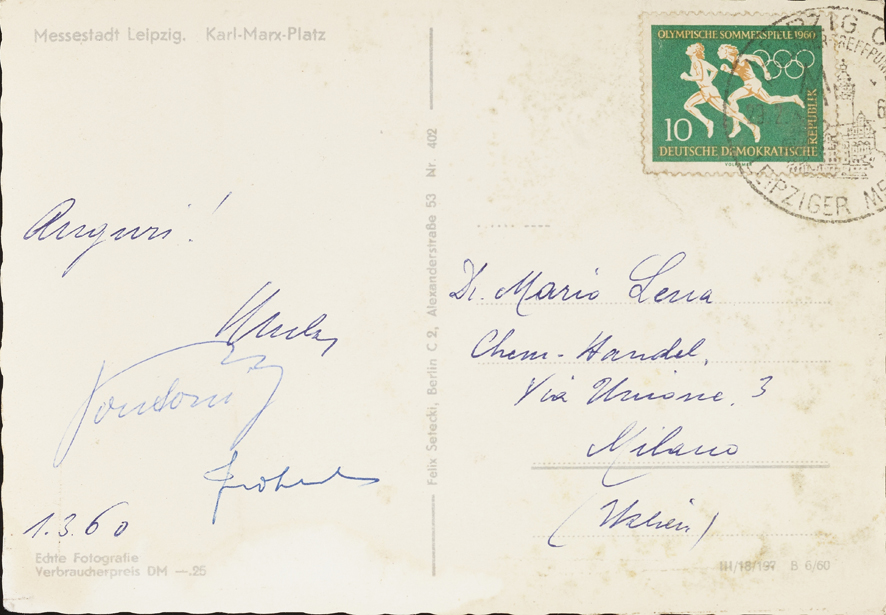 Messestadt Leipzig. Karl-Marx-Platz
Auguri!
1.3.60
Echte Fotografie
Verbraucherpreis DM —.25
Felix Setecki, Berlin C 2, Alexanderstraße 53 Nr. 402
OLYMPISCHE SOMMERSPIELE 1960
10
DEUTSCHE DEMOKRATISCHE
REPUBLIK
LEIPZIGER ME
Dr. Mario Lena
Chem-Handel,
Via Unione. 3
Milano
(Italien)
III/18/197 B 6/60